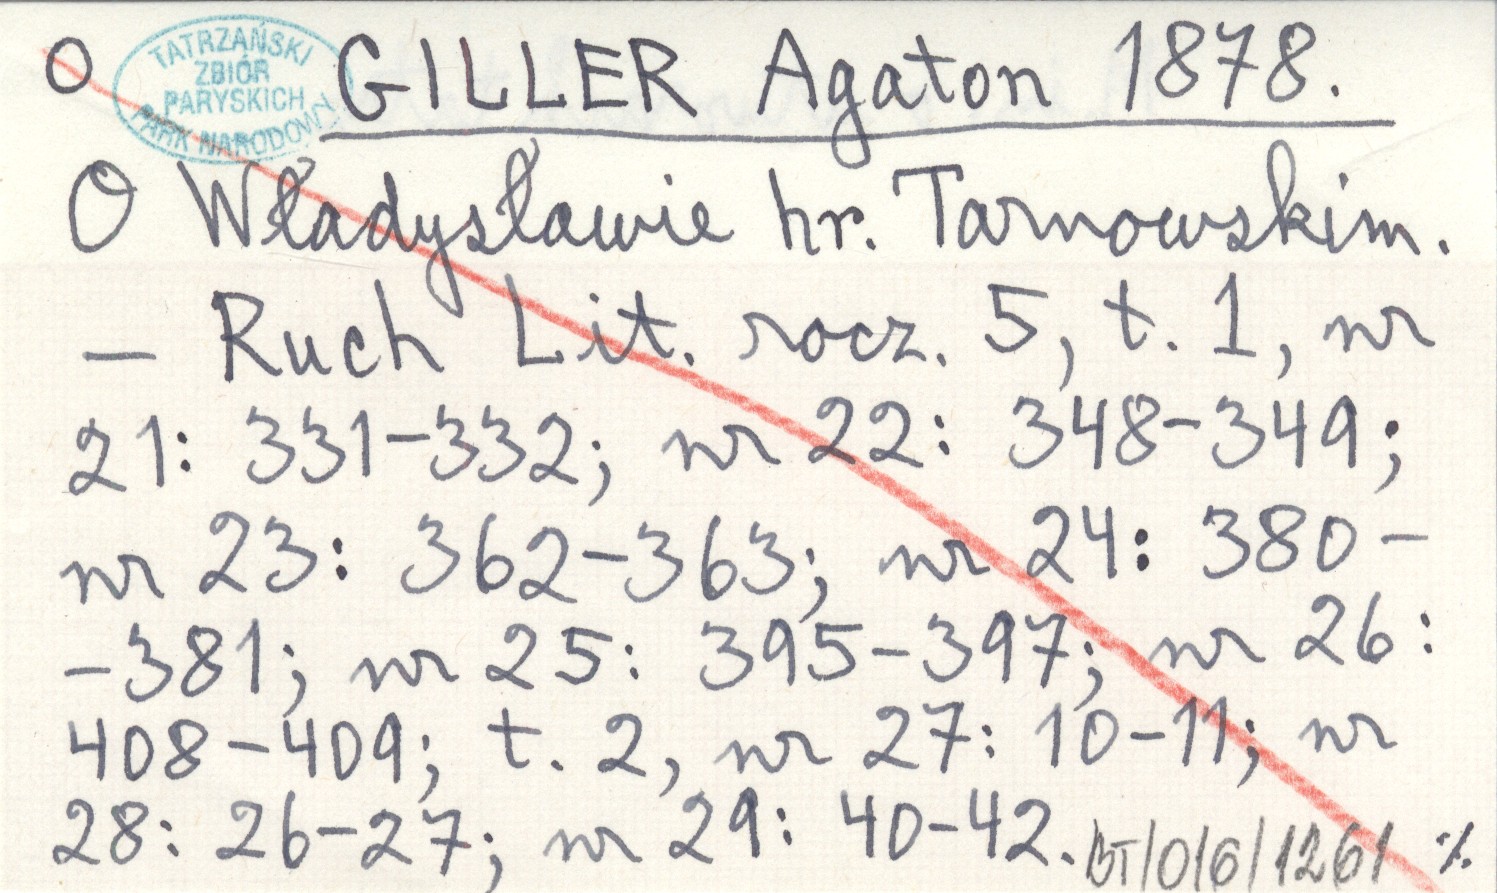 O
TATRZAŃSKI
ZBIÓR
PARYSKICH
PARK NARODOWY
GILLER Agaton 1878.
O Władysławie hr. Tarnowskim.
— Ruch Lit. rocz. 5, t. 1, nr
21: 331-332; nr 22: 348-349;
nr 23: 362-363; nr 24: 380-
-381; nr 25: 395-397; nr 26:
408-409; t. 2, nr 27: 10-11; nr
28: 26-27; nr 29: 40-42.
BT/O/G/1261 ./.